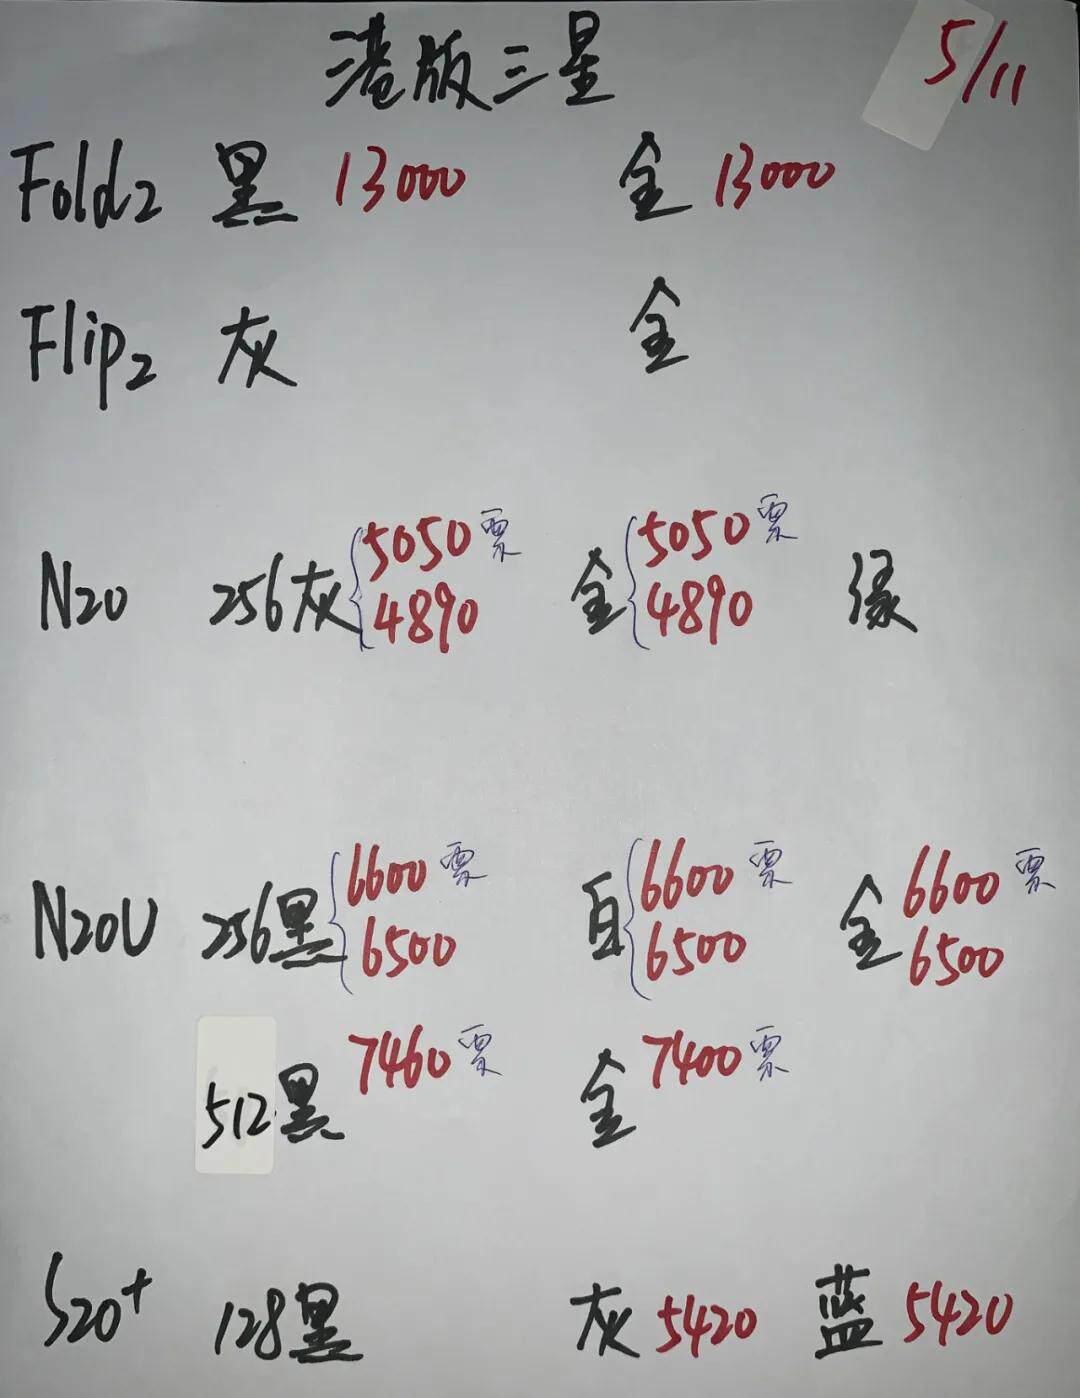 港版三星 5/11
Fold2 黑 13000 金 13000
Flip2 灰 金
N20 256灰 5050票 金 5050票 绿
4890 4890
N20U 256黑 6600票 白 6600票 金 6600票
6500 6500 6500
512黑 7460票 金 7400票
S20+ 128黑 灰 5420 蓝 5420